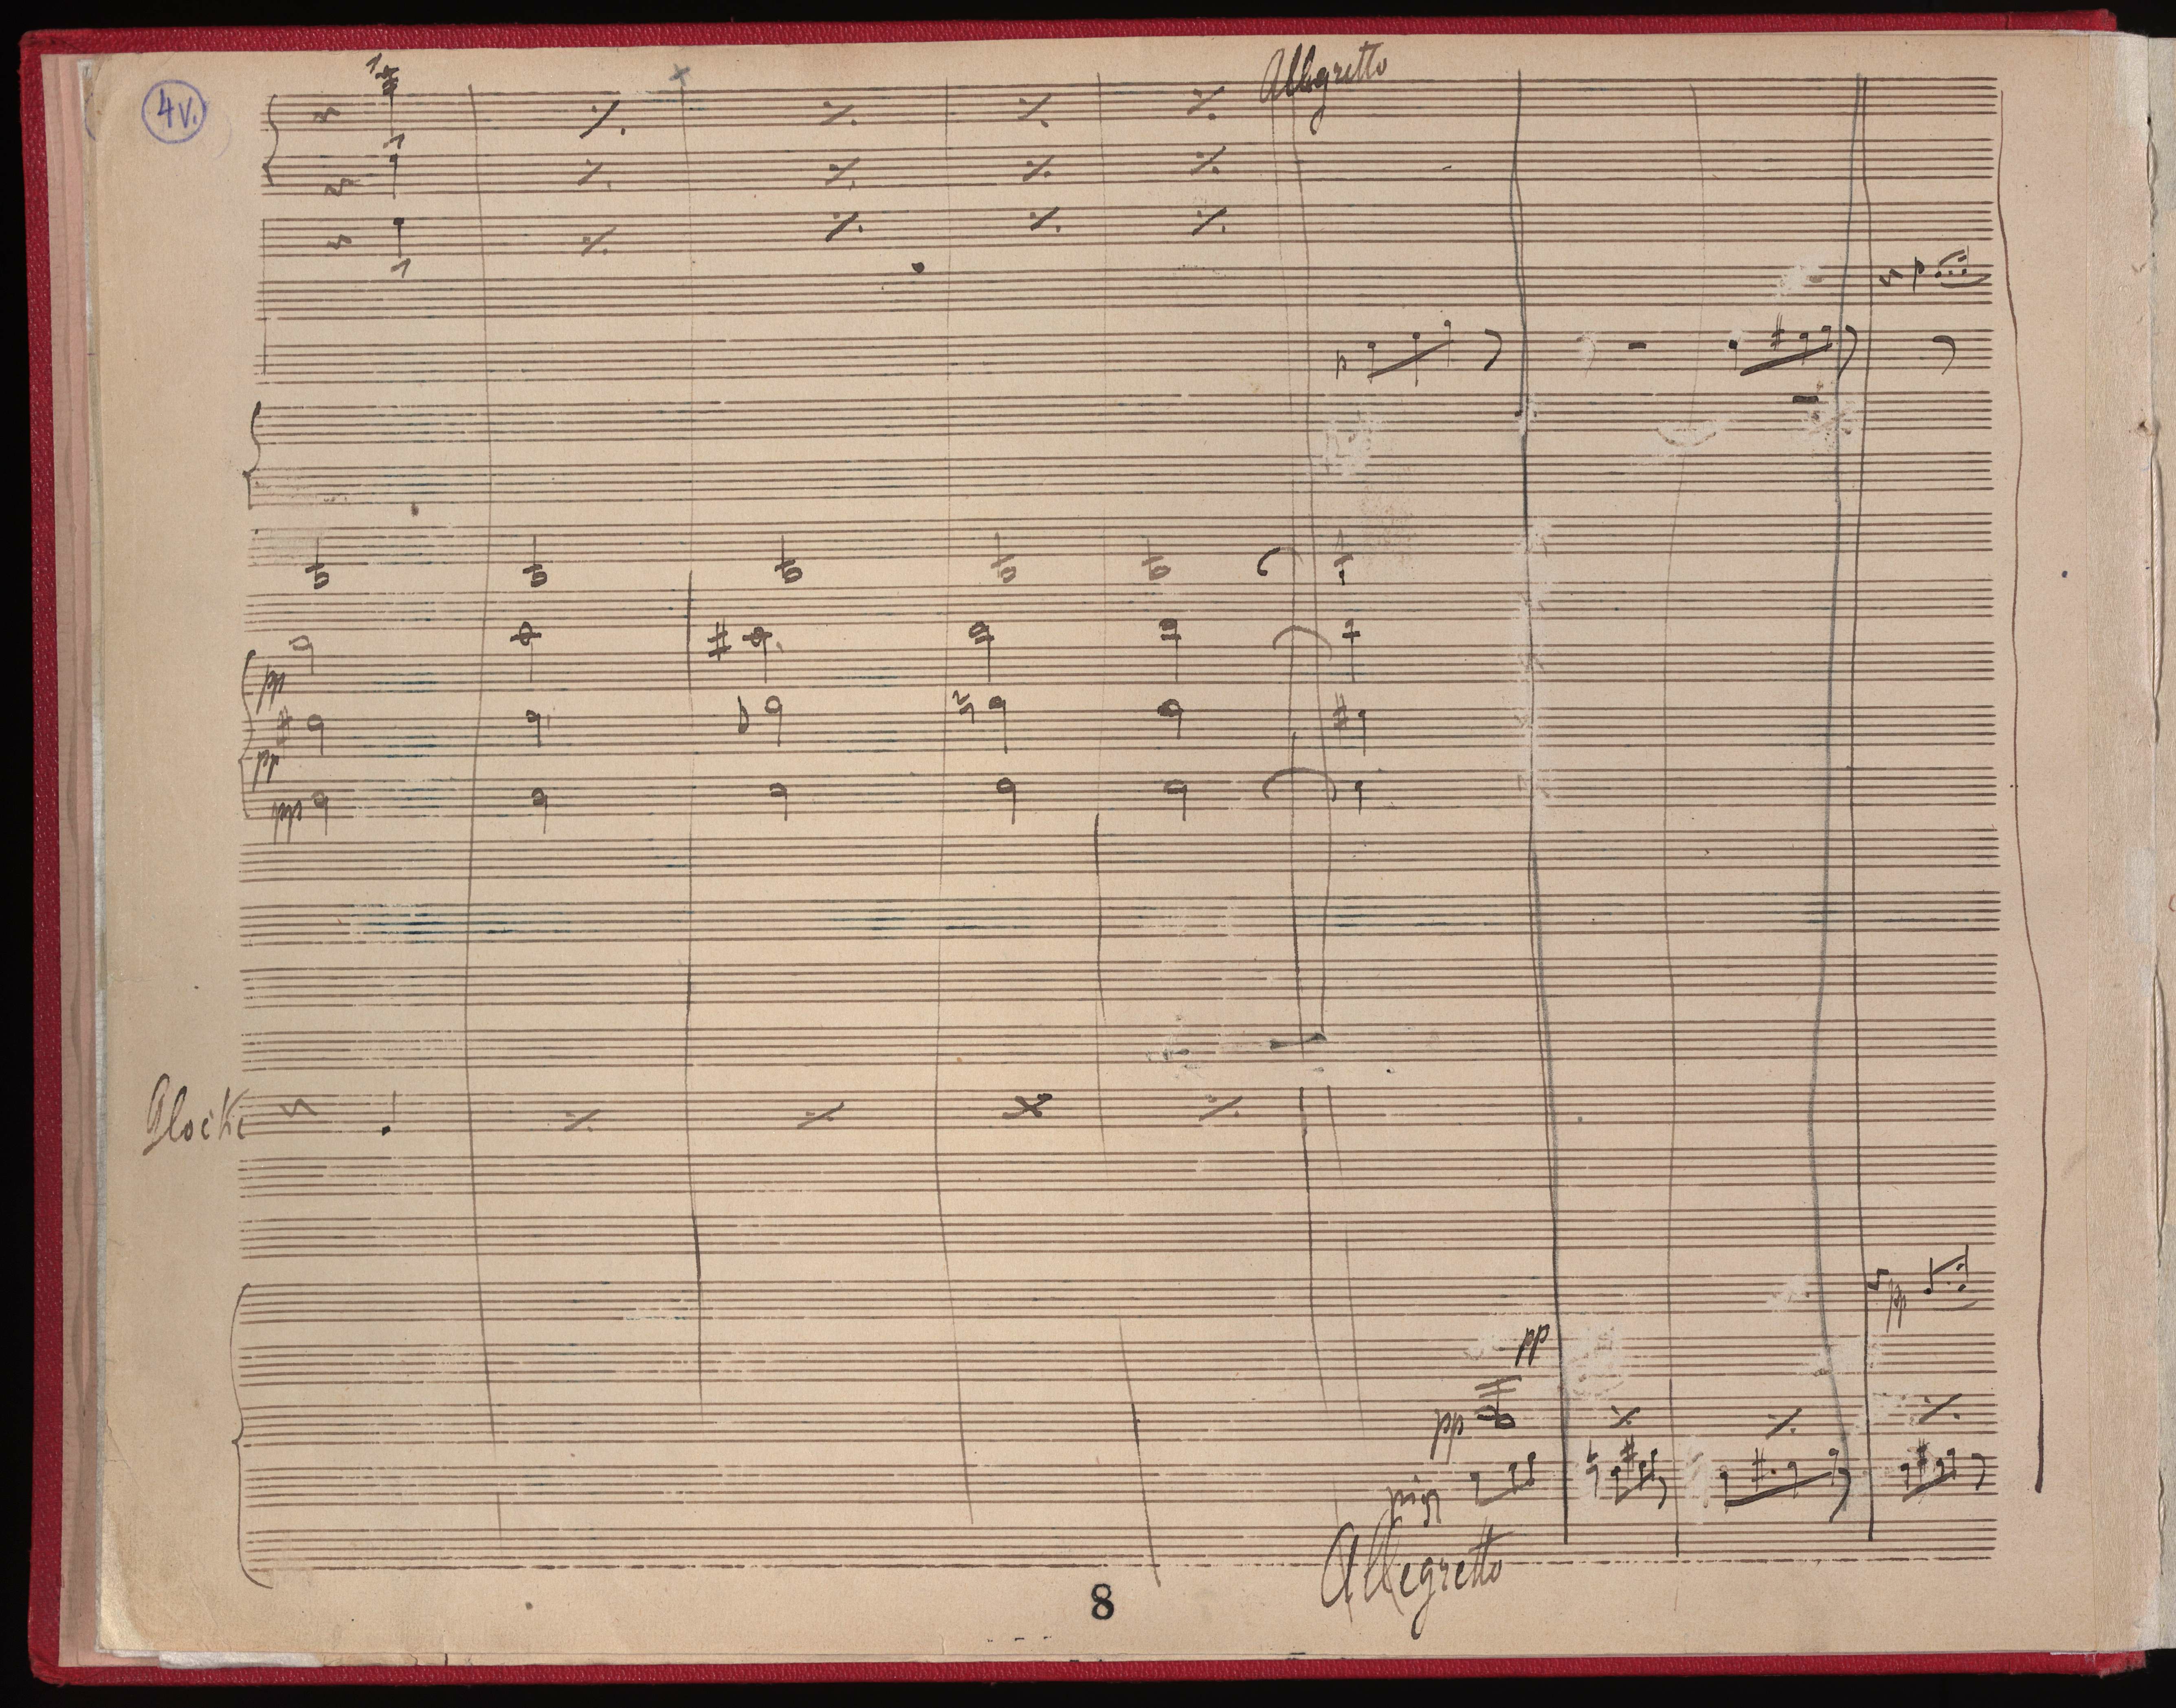 4v.
Allegretto
p
p
pp
pp
ppp
Glocke
pp
pp
pp
Allegretto
8